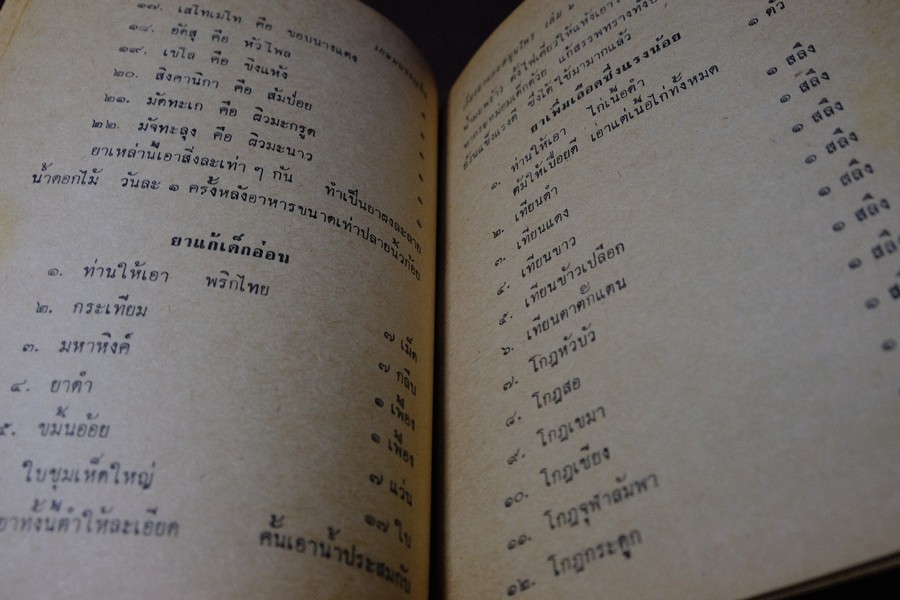 ๑๗. เสโทเมโท คือ ขอบนางแดง
๑๘. อัคสุ คือ หัวไพล
๑๙. เขโส คือ ขิงแห้ง
๒๐. สิงคานิกา คือ ส้มป่อย
๒๑. มัตะเก คือ ผิวมะกรูด
๒๒. มัจทะลุง คือ ผิวมะนาว
ยาเหล่านี้เอาสิ่งละเท่า ๆ กัน ทำเป็นยาผงละลาย
น้ำดอกไม้ วันละ ๑ ครั้งหลังอาหารขนาดเท่าปลายนิ้วก้อย
ยาแก้เด็กอ่อน
๑. ท่านให้เอา พริกไทย ๗ เม็ด
๒. กระเทียม ๗ กลีบ
๓. มหาหิงค์ ๑ เฟื้อง
๔. ยาดำ ๑ เฟื้อง
๕. ขมิ้นอ้อย ๗ แว่น
ใบชุมเห็ดใหญ่ ๑๗ ใบ
ยาทั้งนี้ตำให้ละเอียด คั้นเอาน้ำประสมกับ
เล่ม ๒
ซึ่งได้ใช้มามากแล้ว
ยาเพิ่มเลือดซึ่งแรงน้อย
๑. ท่านให้เอา ไก่เนื้อดำ ๑ ตัว
ต้มให้เปื่อยดี เอาแต่เนื้อไก่ทั้งหมด
๒. เทียนดำ ๑ สลึง
๓. เทียนแดง ๑ สลึง
๔. เทียนขาว ๑ สลึง
๕. เทียนข้าวเปลือก ๑ สลึง
๖. เทียนตาตั๊กแตน ๑ สลึง
๗. โกฎหัวบัว ๑ สลึง
๘. โกฎสอ
๙. โกฎเขมา
๑๐. โกฎเชียง
๑๑. โกฎจุฬาลัมพา
๑๒. โกฎกระดูก